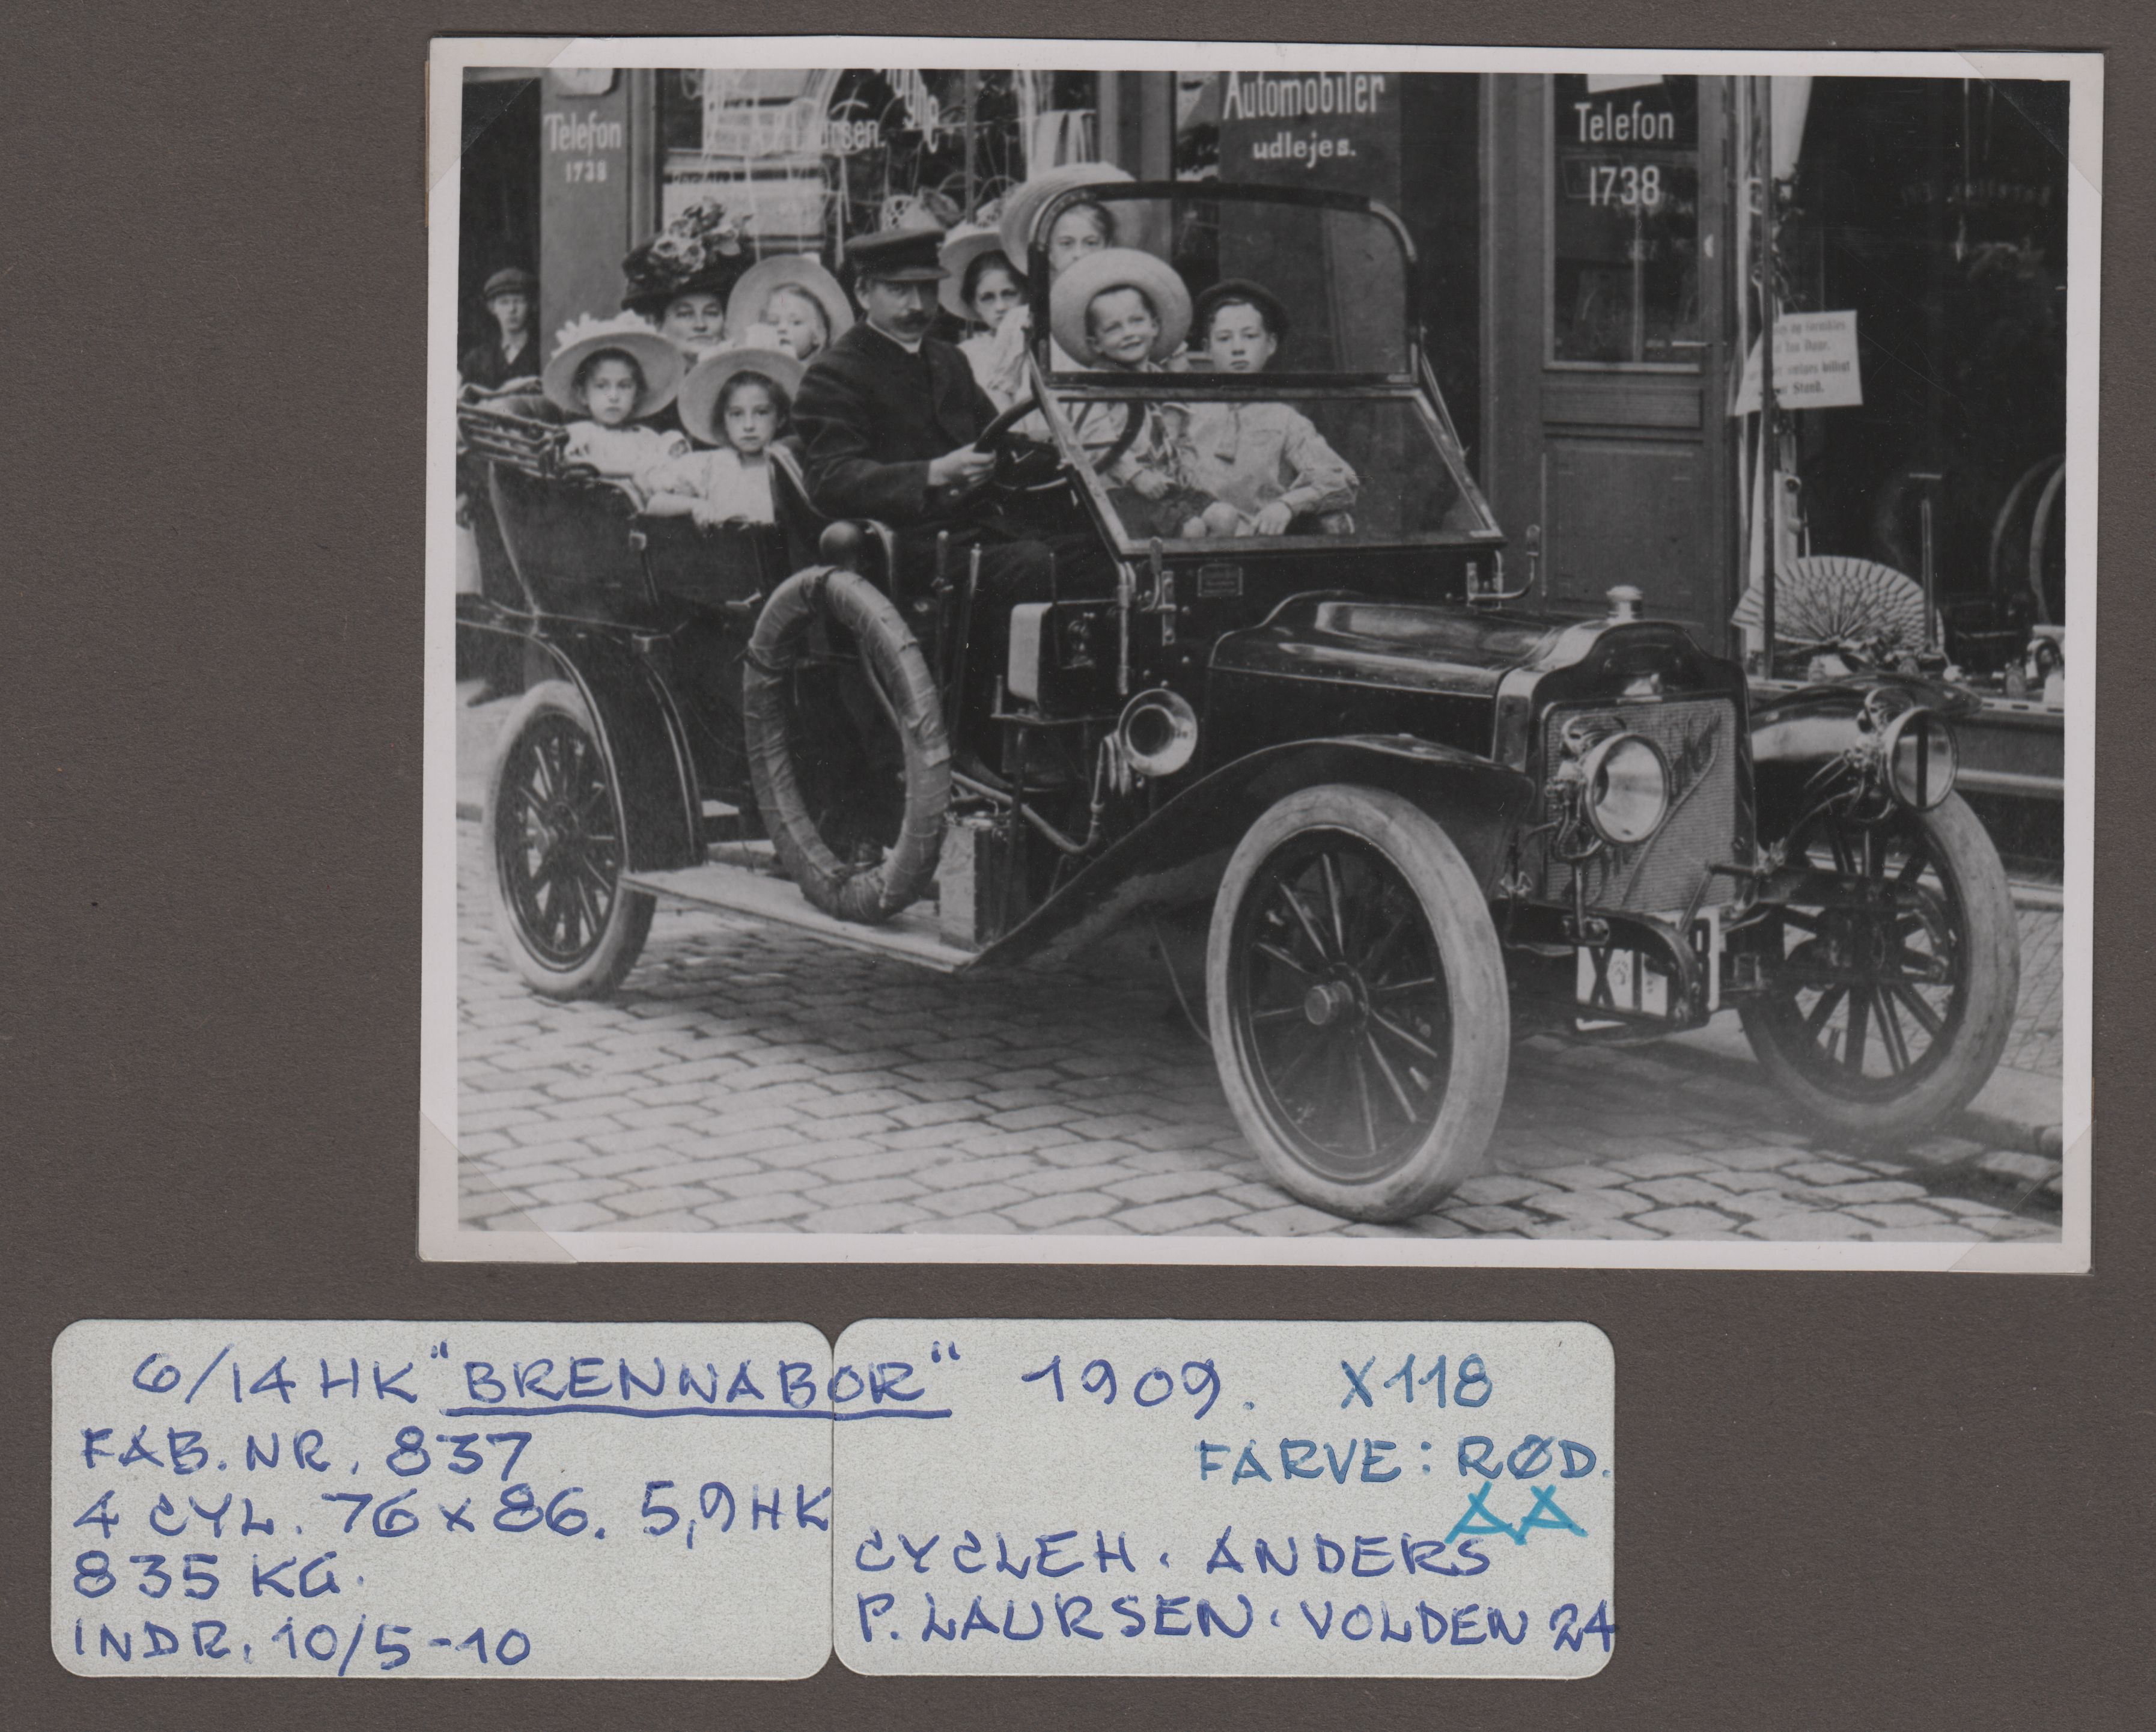 Telefon
1738
Automobiler
udlejes.
Telefon
1738
X118
6/14 HK "BRENNABOR" 1909. X118
FAB. NR. 837
FARVE: RØD.
4 CYL. 76 x 86. 5,9 HK
AA
835 KG.
CYCLEH. ANDERS
INDR. 10/5-10
P. LAURSEN. VOLDEN 24